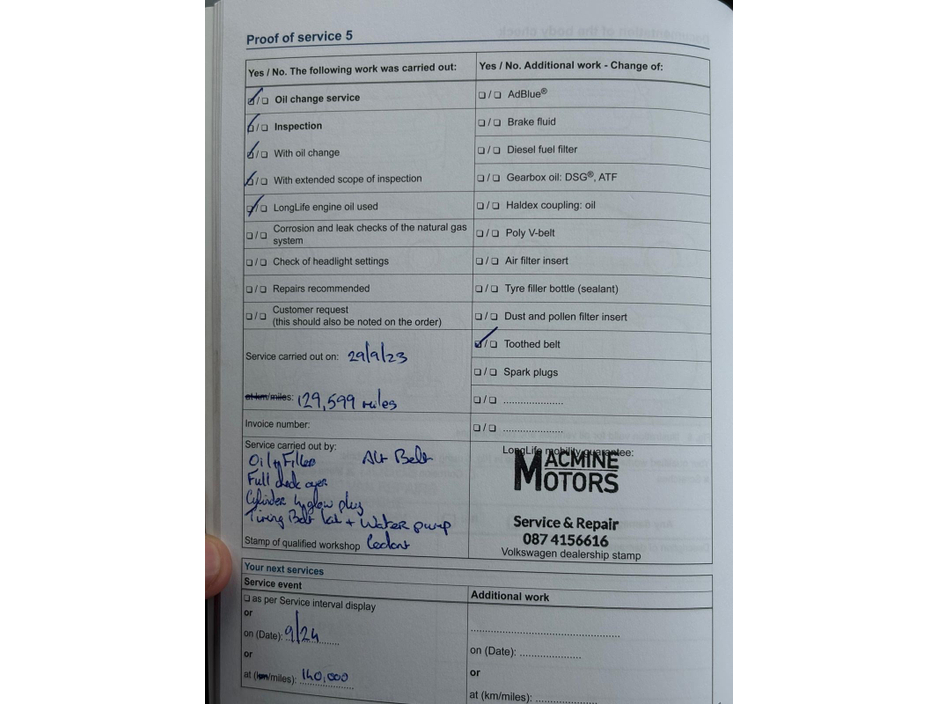 Proof of service 5
Yes / No. The following work was carried out:
❏ / ❏ Oil change service
❏ / ❏ Inspection
❏ / ❏ With oil change
❏ / ❏ With extended scope of inspection
❏ / ❏ LongLife engine oil used
❏ / ❏ Corrosion and leak checks of the natural gas
system
❏ / ❏ Check of headlight settings
❏ / ❏ Repairs recommended
❏ / ❏ Customer request
(this should also be noted on the order)
Service carried out on: 29/9/23
at km/miles: 129,599 miles
Invoice number:
Service carried out by:
Oil + Filter Alt Belt
Full check over
Cylinder 4 glow plug
Timing Belt kit + Water pump
Coolant
Stamp of qualified workshop
Yes / No. Additional work - Change of:
❏ / ❏ AdBlue®
❏ / ❏ Brake fluid
❏ / ❏ Diesel fuel filter
❏ / ❏ Gearbox oil: DSG®, ATF
❏ / ❏ Haldex coupling: oil
❏ / ❏ Poly V-belt
❏ / ❏ Air filter insert
❏ / ❏ Tyre filler bottle (sealant)
❏ / ❏ Dust and pollen filter insert
❏ / ❏ Toothed belt
❏ / ❏ Spark plugs
❏ / ❏ .....................
❏ / ❏ .....................
LongLife mobility guarantee:
MACMINE
MOTORS
Service & Repair
087 4156616
Volkswagen dealership stamp
Your next services
Service event
❏ as per Service interval display
or
on (Date): 9/24
or
at (km/miles): 140,000
Additional work
.....................................................
on (Date): .....................
or
at (km/miles): .....................